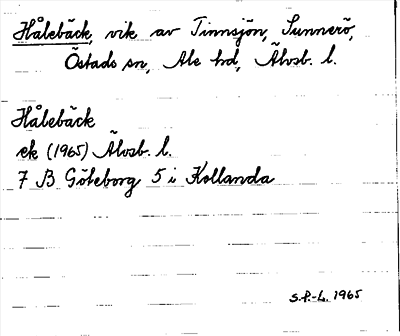 Hålebäck, vik av Tinnsjön, Sunnerö,
Östads sn, Ale hd, Älvsb. l.
Hålebäck
ek (1965) Älvsb. l.
7 B Göteborg 5 i Kollanda
S.P.-L. 1965